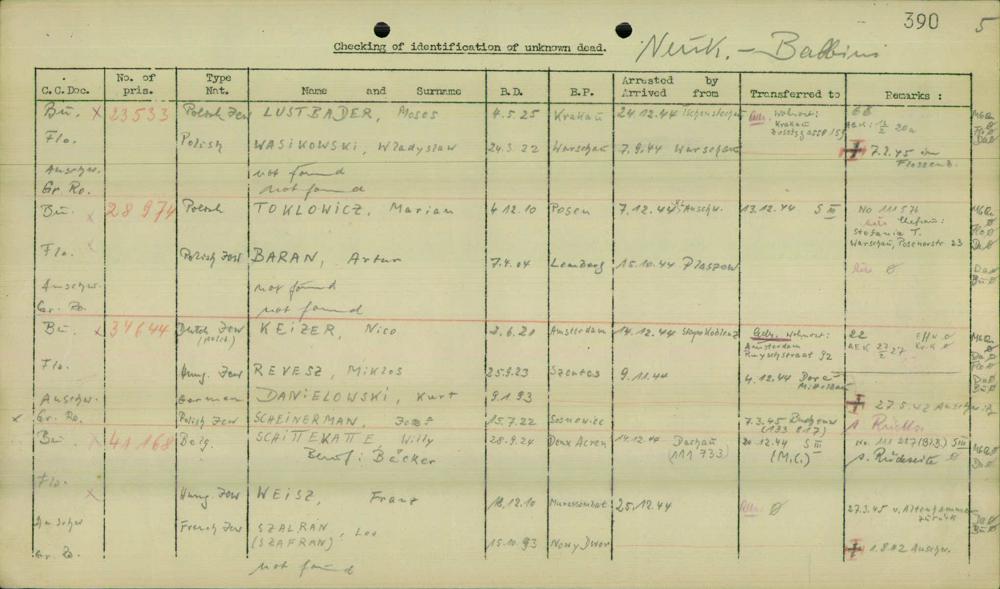 390 5
Checking of identification of unknown dead. Neuk. - Balbini
C.C.Doc. No. of pris. Type Nat. Name and Surname B.D. B.P. Arrested by Arrived from Transferred to Remarks :
Bu. x 23533 Polish Jew LUSTBADER, Moses 4.5.25 Krakau 24.12.44 Tschenstochau Wohnort: Krakau
Flo. Polish WASIKOWSKI, Wladyslaw 24.3.22 Warschau 7.9.44 Warschau 7.2.45 in Flossenb.
Auschw. not found
Gr. Ro. not found
Bu. x 28974 Polish TOKLOWICZ, Marian 4.12.10 Posen 7.12.44 Auschw. 13.12.44 S III No 111576
Ehefrau:
Stefania T.
Warschau, Posenerstr 23
Flo. x Polish Jew BARAN, Artur 7.4.04 Lemberg 15.10.44 Plaszow
Auschw. not found
Gr. Ro. not found
Bu. x 34644 Dutch Jew KEIZER, Nico 2.6.20 Amsterdam 14.12.44 Stapo Koblenz Wohnort: 22
Amsterdam
Ruyschstraat 92
Flo. Hung. Jew REVESZ, Miklos 25.9.23 Szentes 9.11.44 4.12.44 Dora Mittelbau
Auschw. German DANIELOWSKI, Kurt 9.1.93 27.5.42 Auschwitz
x Gr. Ro. Polish Jew SCHEINERMAN, Josef 15.7.22 Sosnowiec 7.3.45 Buchenw
Bu. x 41168 Belg. SCHITTEKATTE, Willy 28.9.24 Deux Acren 14.12.44 Dachau (111733) 20.12.44 S III (M.C.) No. 111217 (B.B.) S III
Beruf: Bäcker s. Rückseite
Flo. x Hung. Jew WEISZ, Franz 18.12.10 Muraszombat 25.12.44 27.3.45 v. Altenhammer zurück
Auschw French Jew SZALRAN, Leo
(SZAFRAN) 15.10.93 Nowy Dwor 1.8.42 Auschw.
Gr. Ro. not found